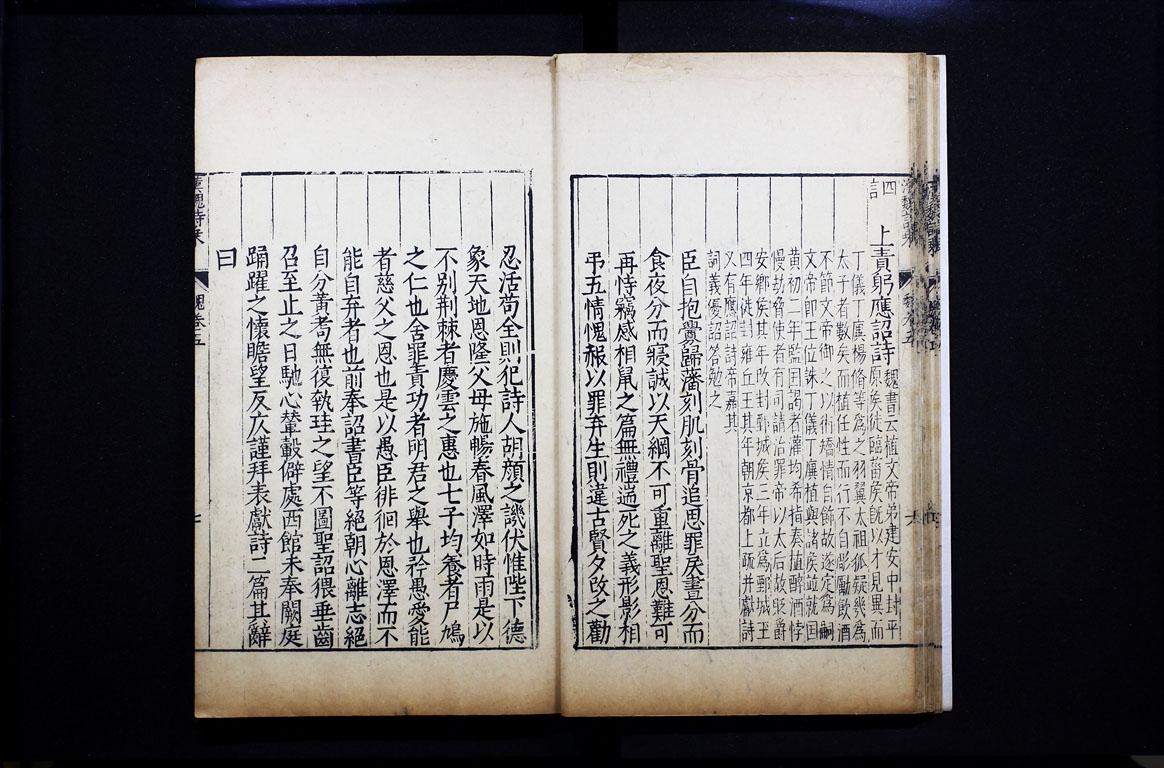 四言
上責躬應詔詩
魏書云植文帝弟建安中封平
原矦徙臨菑矦旣以才見異而
丁儀丁廙楊脩等爲之羽翼太祖狐疑幾爲
太子者數矣而植任性而行不自彫勵飲酒
不節文帝御之以術矯情自飾故遂定爲嗣
文帝卽王位誅丁儀丁廙植與諸矦竝就囯
黃初二年監囯謁者灌均希指奏植醉酒悖
慢劫脅使者有司請治罪帝以太后故貶爵
安鄉矦其年改封鄄城矦三年立爲鄄城王
四年徙封雍丘王其年朝京都上疏并獻詩
又有應詔詩帝嘉其
詞義優詔答勉之
臣自抱釁歸藩刻肌刻骨追思罪戾晝分而
食夜分而寢誠以天網不可重離聖恩難可
再恃竊感相鼠之篇無禮遄死之義形影相
弔五情愧赧以罪弃生則違古賢夕改之勸
忍活苟全則犯詩人胡顏之譏伏惟陛下德
象天地恩隆父母施暢春風澤如時雨是以
不别荆棘者慶雲之惠也七子均養者尸鳩
之仁也舍罪責功者明君之舉也矜愚愛能
者慈父之恩也是以愚臣徘徊於恩澤而不
能自弃者也前奉詔書臣等絕朝心離志絕
自分黃耉無復執珪之望不圖聖詔猥垂齒
召至止之日馳心輦轂僻處西館未奉闕庭
踊躍之懷瞻望反仄謹拜表獻詩二篇其辭
曰
漢魏詩乘
魏卷五
七